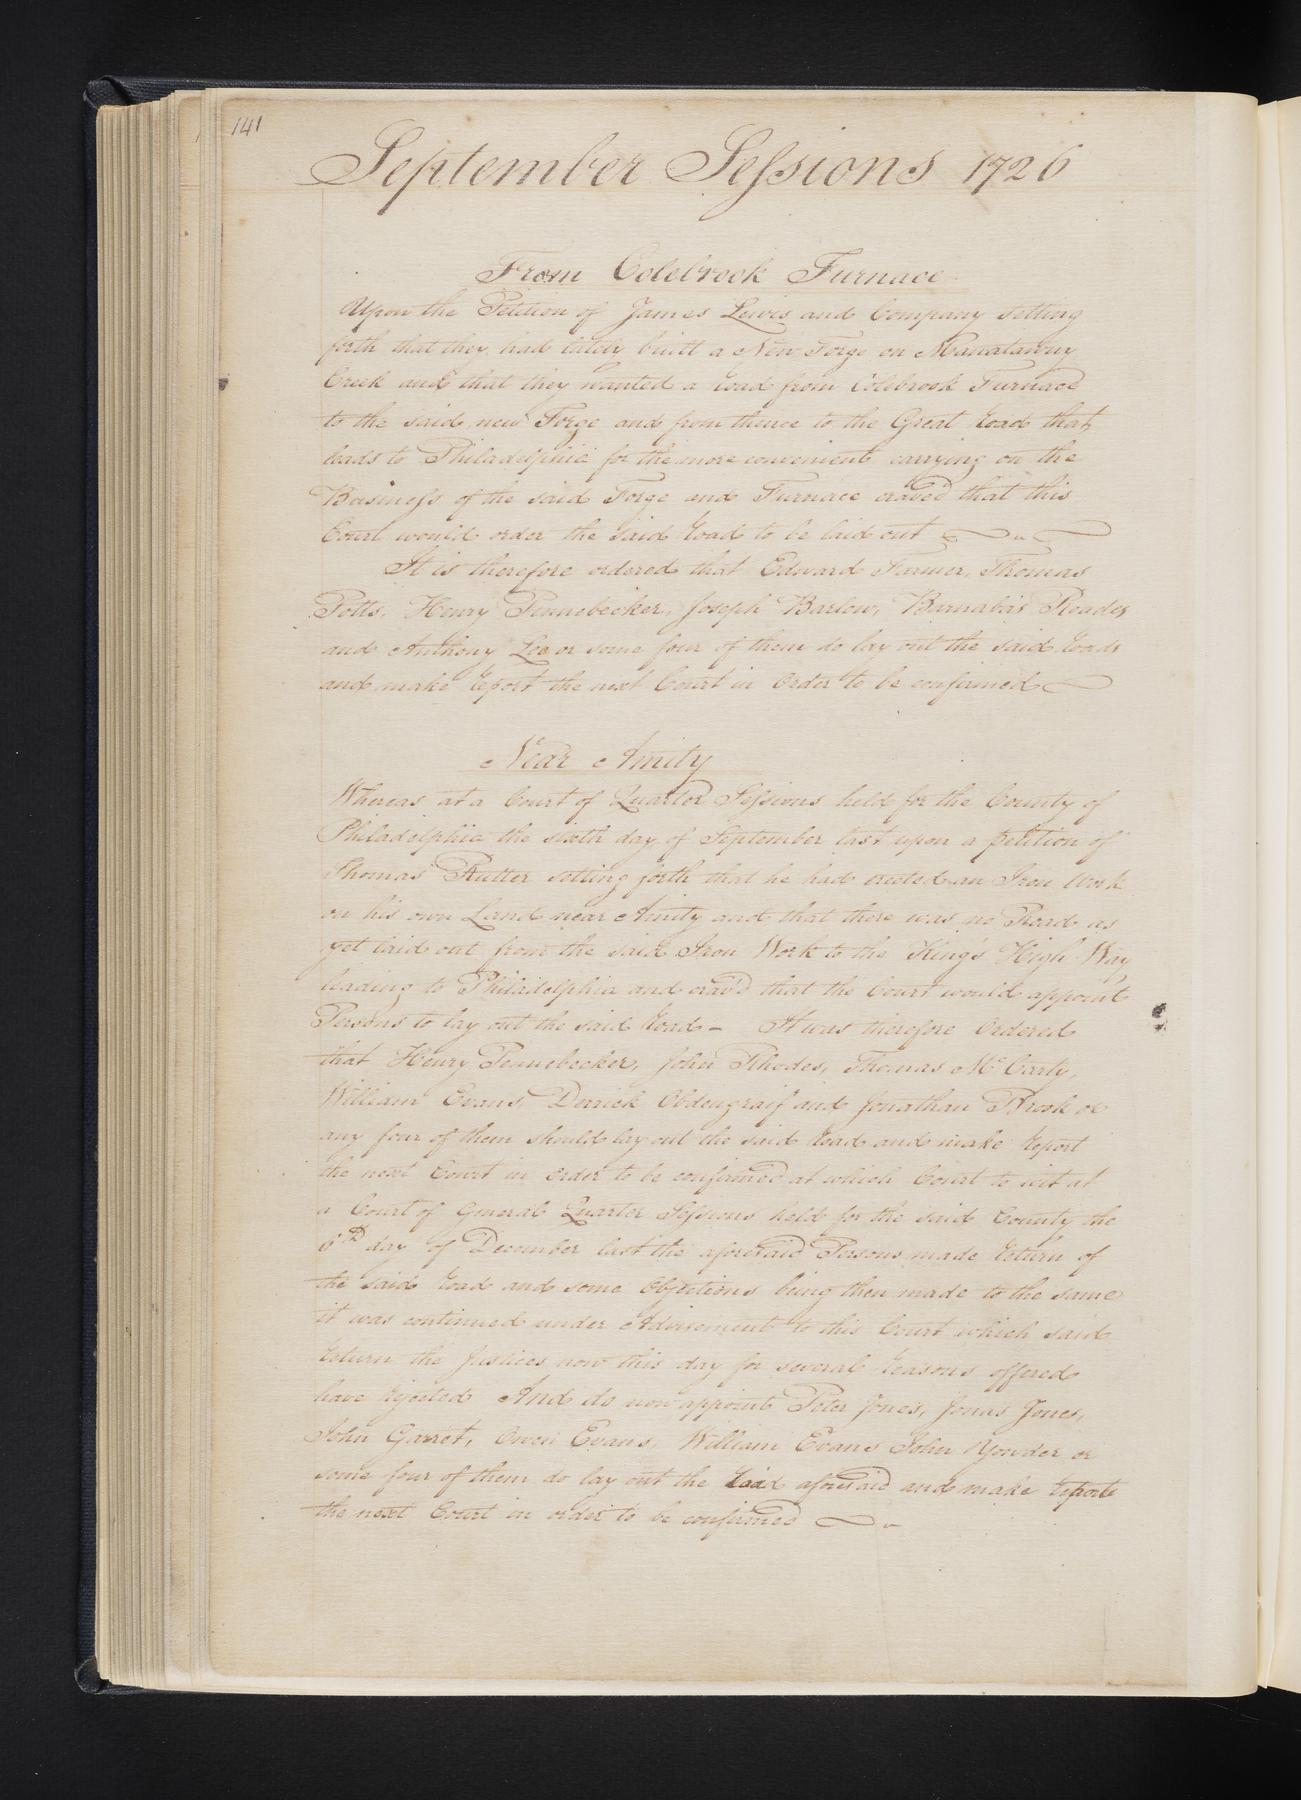 141
September Sessions 1726
From Colebrook Furnace
Upon the Petition of James Lewis and Company setting
forth that they had lately built a New Forge on Manatawny
Creek and that they wanted a road from Colebrook Furnace
to the said new Forge and from thence to the Great Road that
leads to Philadelphia for the more convenient carrying on the
Business of the said Forge and Furnace craved that this
Court would order the said Road to be laid out
It is therefore ordered that Edward Farmer, Thomas
Potts, Henry Pennebecker, Joseph Barlow, Barnabas Roades
and Anthony Lee or some four of them do lay out the said Roads
and make report the next Court in Order to be confirmed
Near Amity
Whereas at a Court of Quarter Sessions held for the County of
Philadelphia the sixth day of September last upon a petition of
Thomas Rutter setting forth that he had erected an Iron Work
on his own Land near Amity and that there was no Road as
yet laid out from the said Iron Work to the King's High Way
leading to Philadelphia and crav'd that the Court would appoint
Persons to lay out the said Road – It was therefore Ordered
that Henry Pennebecker, John Rhodes, Thomas McCarty,
William Evans, Derrick Obdengraif and Jonathan Brook or
any four of them should lay out the said Road and make report
the next Court in order to be confirmed at which Court to wit at
a Court of General Quarter Sessions held for the said County the
6th day of December last the aforesaid Persons made return of
the said Road and some Objections being then made to the same
it was continued under Advisement to this Court which said
return the Justices now this day for several reasons offered
have rejected And do now appoint Peter Jones, Jonas Jones,
John Garret, Owen Evans, William Evans John Yowder or
some four of them do lay out the Road aforesaid and make report
the next Court in order to be confirmed